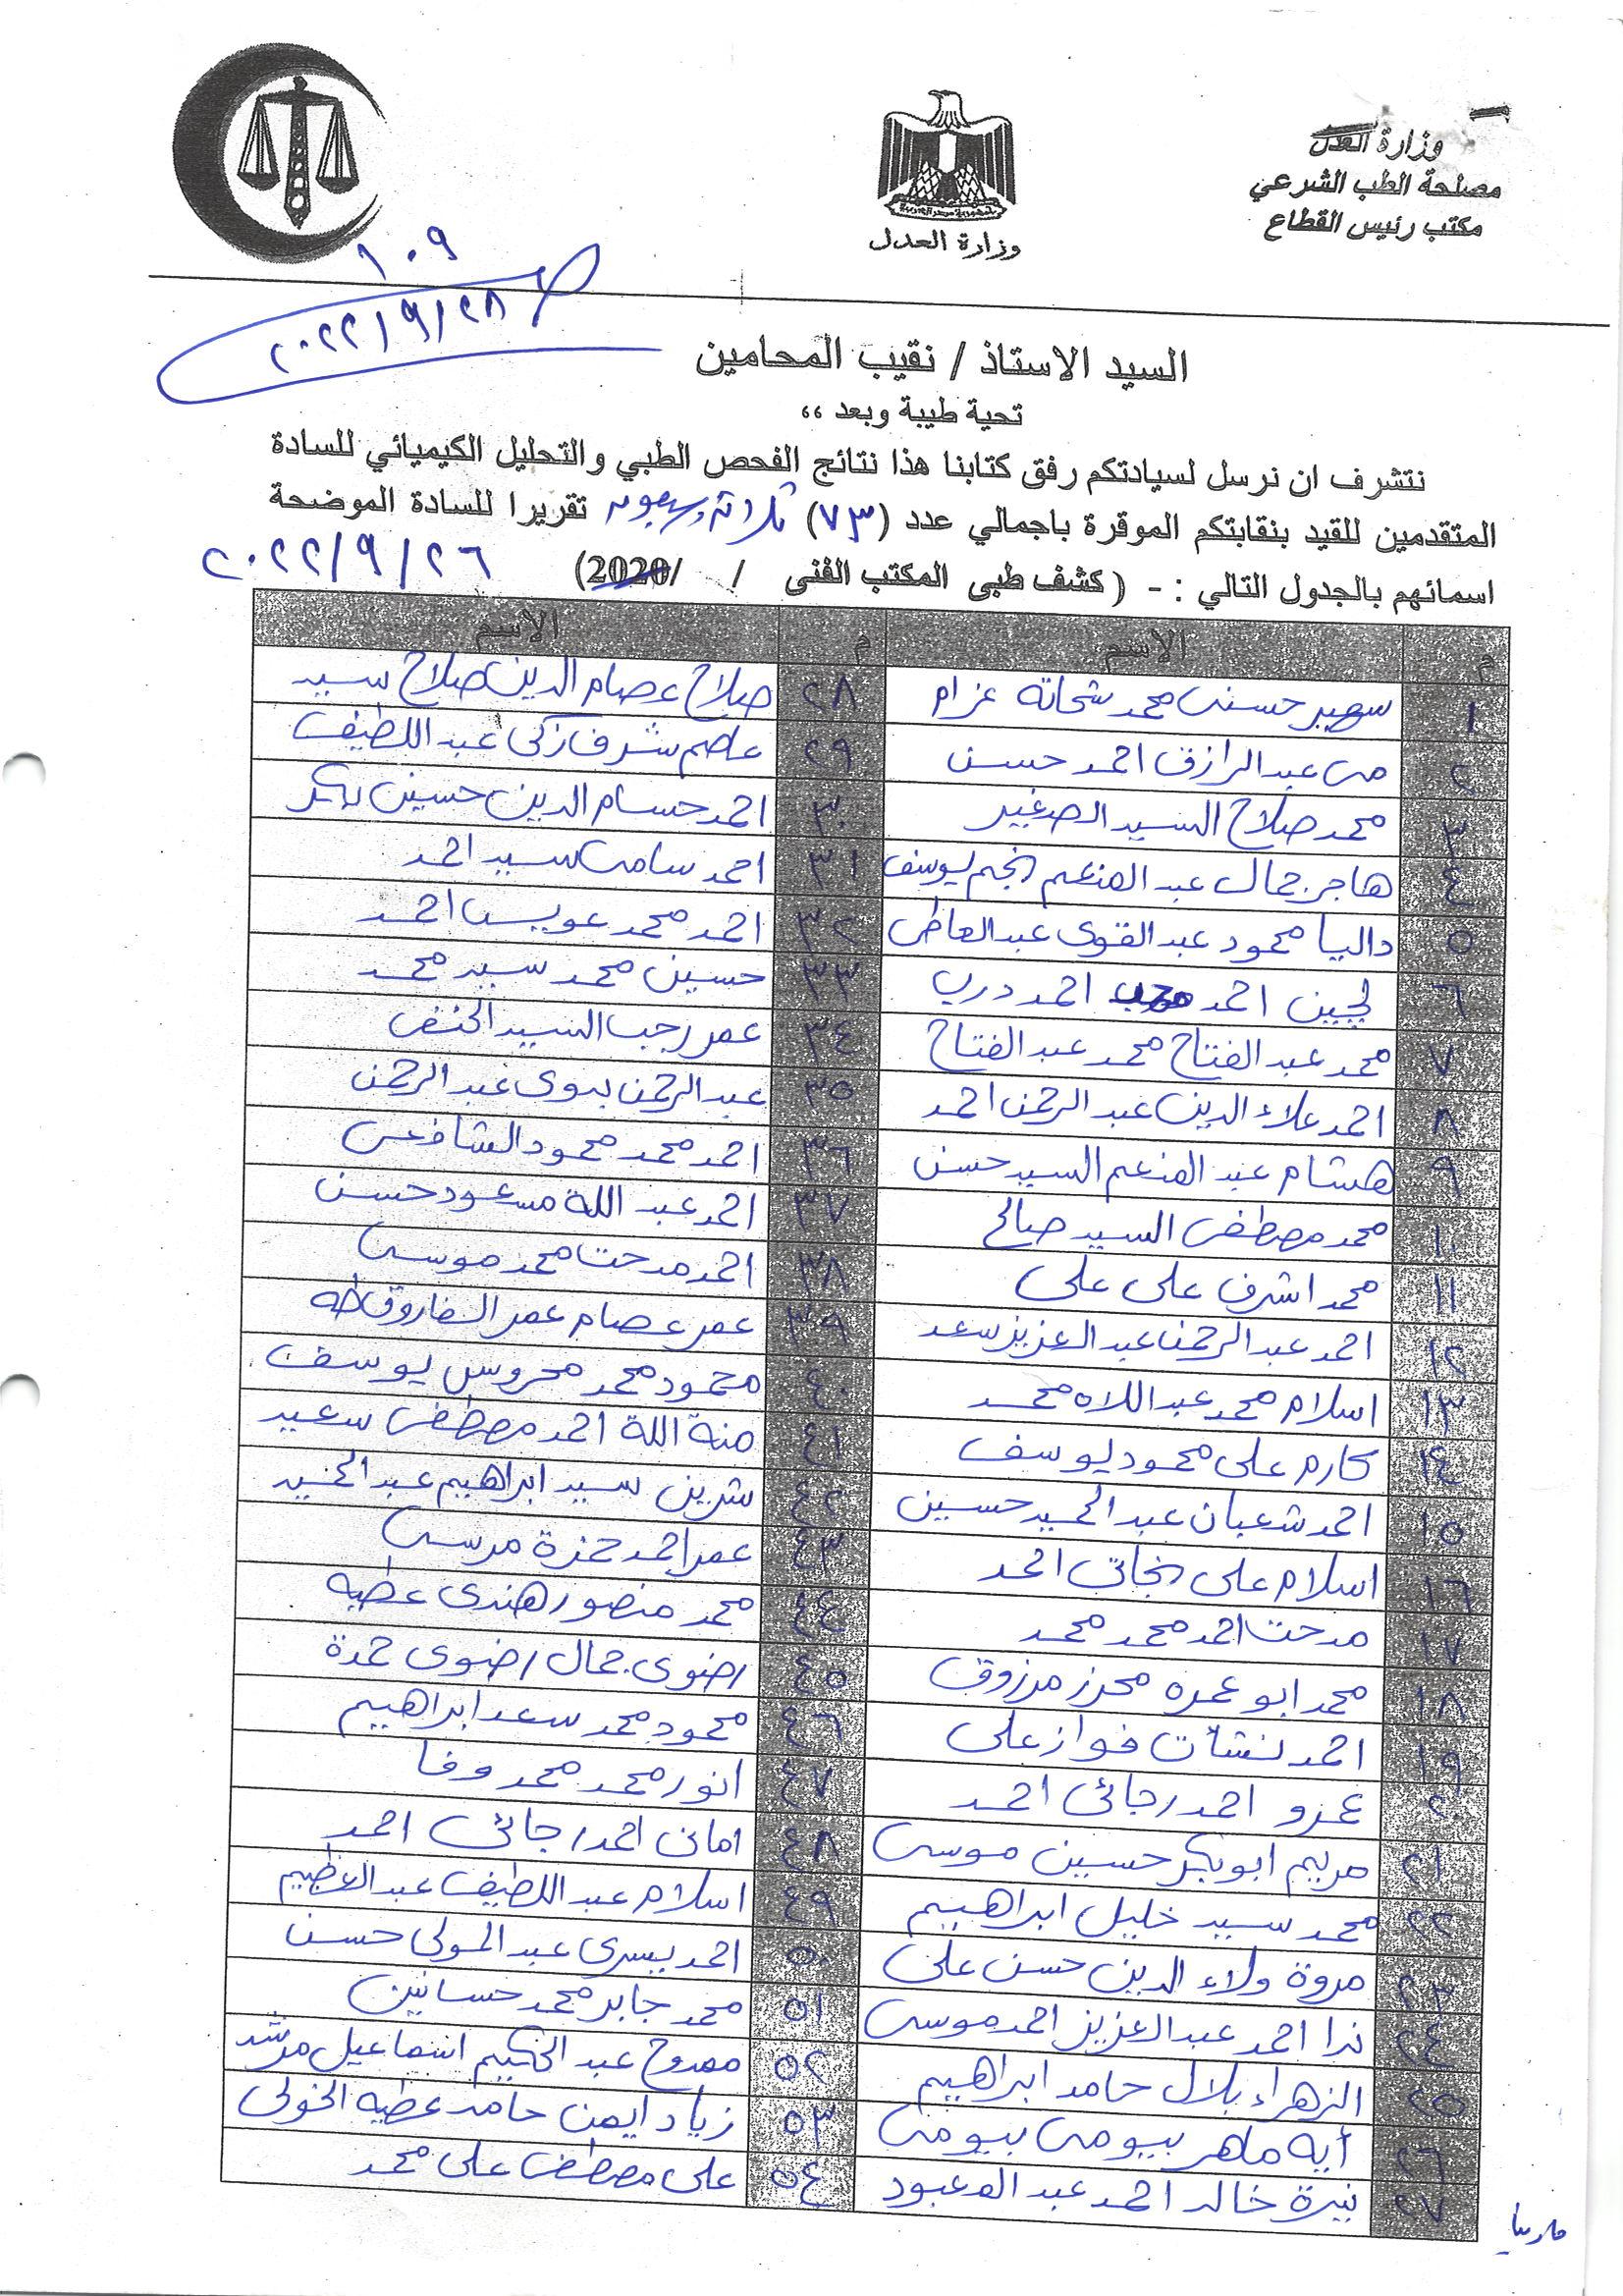 وزارة العدل
مصلحة الطب الشرعي
مكتب رئيس القطاع
وزارة العدل
ص ١٠٩
٢٠٢٢/٩/٢٨
السيد الاستاذ / نقيب المحامين
تحية طيبة وبعد ،،
نتشرف ان نرسل لسيادتكم رفق كتابنا هذا نتائج الفحص الطبي والتحليل الكيميائي للسادة
المتقدمين للقيد بنقابتكم الموقرة باجمالي عدد (٧٣) ثلاثة وسبعون تقريرا للسادة الموضحة
اسمائهم بالجدول التالي : - ( كشف طبى المكتب الفنى / /2020) ٢٠٢٢/٩/٢٦
م الإسم م الإسم
١ سهير حسنى محمد شحاته عزام ٢٨ صلاح عصام الدين صلاح سيد
٢ مى عبد الرازق احمد حسن ٢٩ عاصم شرف زكى عبد اللطيف
٣ محمد صلاح السيد الصغير ٣٠ احمد حسام الدين حسين بكر
٤ هاجر جمال عبد المنعم نجم يوسف ٣١ احمد سامى سيد احمد
٥ داليا محمود عبد القوى عبد العاطى ٣٢ احمد محمد عويس احمد
٦ لجين احمد احمد دري ٣٣ حسين محمد سيد محمد
٧ محمد عبد الفتاح محمد عبد الفتاح ٣٤ عمر رجب السيد الحنفى
٨ احمد علاء الدين عبد الرحمن احمد ٣٥ عبد الرحمن بدوى عبد الرحمن
٩ هشام عبد المنعم السيد حسن ٣٦ احمد محمد محمود الشافعى
١٠ محمد مصطفى السيد صالح ٣٧ احمد عبد الله مسعود حسن
١١ محمد اشرف على على ٣٨ احمد مدحت محمد موسى
١٢ احمد عبد الرحمن عبد العزيز سعد ٣٩ عمر عصام عمر الفاروق طه
١٣ اسلام محمد عبد اللاه محمد ٤٠ محمود محمد محروس يوسف
١٤ كارم على محمود يوسف ٤١ منة الله احمد مصطفى سعيد
١٥ احمد شعبان عبد الحميد حسين ٤٢ شرين سيد ابراهيم عبد الحميد
١٦ اسلام على نجاتى احمد ٤٣ عمر احمد حمزة مرسى
١٧ مدحت احمد محمد محمد ٤٤ محمد منصور هندى عطيه
١٨ محمد ابو عمره محرز مرزوق ٤٥ رضوى جمال رضوى حمزة
١٩ احمد نشأت فواز على ٤٦ محمود محمد سعد ابراهيم
٢٠ عمرو احمد رجائى احمد ٤٧ انور محمد محمد وفا
٢١ مريم ابوبكر حسين موسى ٤٨ امانى احمد رجائى احمد
٢٢ محمد سيد خليل ابراهيم ٤٩ اسلام عبد اللطيف عبد العظيم
٢٣ مروة ولاء الدين حسن على ٥٠ احمد يسرى عبد المولى حسن
٢٤ ندا احمد عبد العزيز احمد موسى ٥١ محمد جابر محمد حسانين
٢٥ الزهراء بلال حامد ابراهيم ٥٢ ممدوح عبد الحكيم اسماعيل مرشد
٢٦ أيه ماهر بيومى بيومى ٥٣ زياد ايمن حامد عطيه الخولى
٢٧ نيرة خالد احمد عبد المعبود ٥٤ على مصطفى على محمد